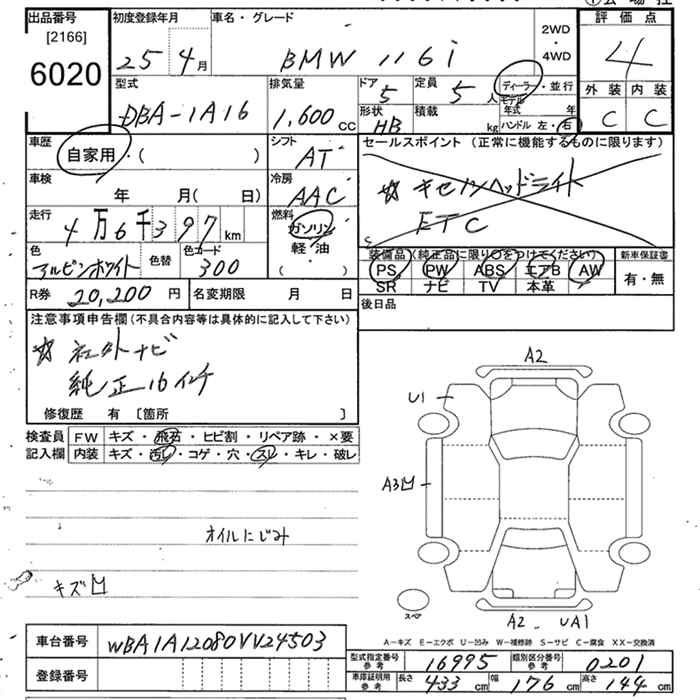 出品番号 初度登録年月 車名・グレード 2WD・4WD 評価点
[2166]
6020 25年 4月 BMW 116i 4
型式 排気量 ドア 5 定員 5人 ディーラー・並行 外装 内装
DBA-1A16 1,600cc 形状 HB 積載 kg モデル年式 年 C C
ハンドル 左・右
車歴 シフト セールスポイント (正常に機能するものに限ります)
自家用・( ) AT
車検 冷房 キセノンヘッドライト
年 月( 日) AAC ETC
走行 燃料
4万6千397km ガソリン
軽・油
( )
色 色替 色コード 装備品(純正品に限り○をつけてください) 新車保証書
アルピンホワイト 300 PS PW ABS エアB AW 有・無
SR ナビ TV 本革
R券 20,200円 名変期限 月 日 後日品
注意事項申告欄(不具合内容等は具体的に記入して下さい)
社外ナビ
純正16インチ
修復歴 有 [箇所 ]
検査員 FW キズ・飛石・ヒビ割・リペア跡・×要
記入欄 内装 キズ・汚レ・コゲ・穴・スレ・キレ・破レ
オイルにじみ
キズ凹
A2
U1
A3凹
スペア
A2 UA1
A-キズ E-エクボ U-凹み W-補修跡 S-サビ C-腐食 XX-交換済
車台番号 WBA1A12080VV24503
登録番号
型式指定番号 16995 類別区分番号 0201
車庫証明用 長さ 433cm 幅 176cm 高さ 144cm